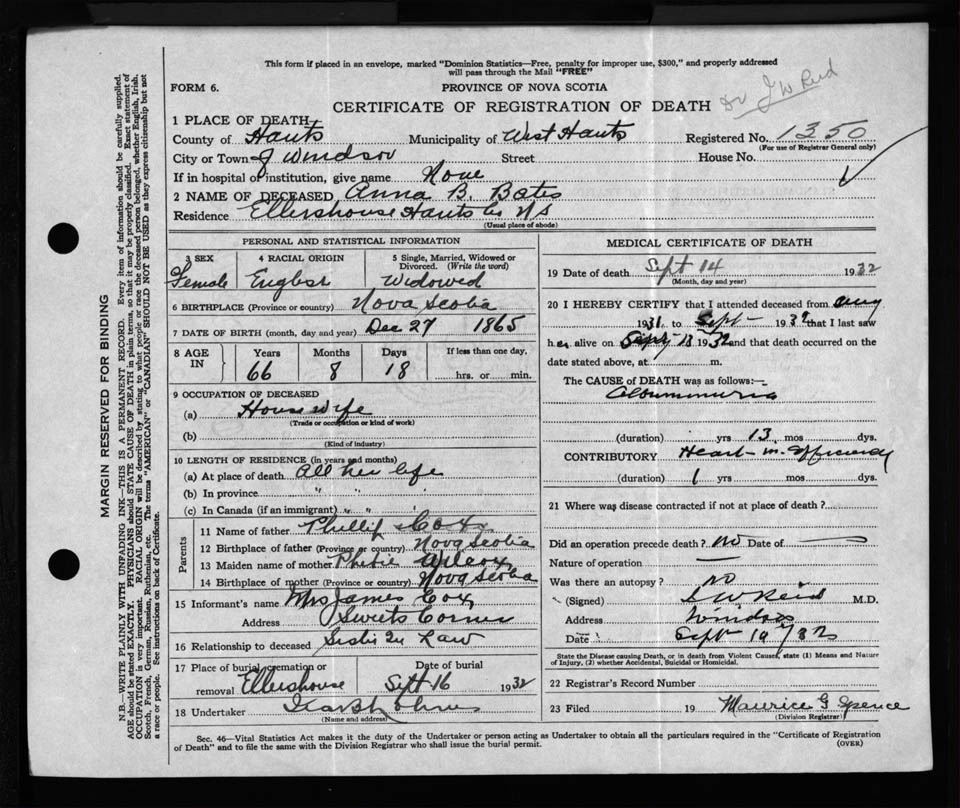 This form if placed in an envelope, marked "Dominion Statistics—Free, penalty for improper use, $300," and properly addressed
will pass through the Mail "FREE"
FORM 6.
PROVINCE OF NOVA SCOTIA
CERTIFICATE OF REGISTRATION OF DEATH
Dr J W Reid
1 PLACE OF DEATH
County of Hants Municipality of West Hants Registered No. 1350
(For use of Registrar General only)
City or Town of Windsor Street House No.
If in hospital or institution, give name None
2 NAME OF DECEASED Anna B. Bates
Residence Ellershouse Hants Co NS
(Usual place of abode)
PERSONAL AND STATISTICAL INFORMATION
3 SEX 4 RACIAL ORIGIN 5 Single, Married, Widowed or
Divorced. (Write the word)
Female English Widowed
6 BIRTHPLACE (Province or country) Nova Scotia
7 DATE OF BIRTH (month, day and year) Dec 27 1865
8 AGE IN Years Months Days If less than one day,
66 8 18 hrs. or min.
9 OCCUPATION OF DECEASED
(a) Housewife
(Trade or occupation or kind of work)
(b)
(Kind of industry)
10 LENGTH OF RESIDENCE (in years and months)
(a) At place of death All her life
(b) In province " " "
(c) In Canada (if an immigrant) " " "
Parents
11 Name of father Phillip Cox
12 Birthplace of father (Province or country) Nova Scotia
13 Maiden name of mother Phebie
14 Birthplace of mother (Province or country) Nova Scotia
15 Informant's name Mrs James Cox
Address Sweets Corner
16 Relationship to deceased Sister In Law
17 Place of burial, cremation or Date of burial
removal Ellershouse Sept 16 1932
18 Undertaker
(Name and address)
MEDICAL CERTIFICATE OF DEATH
19 Date of death Sept 14 1932
(Month, day and year)
20 I HEREBY CERTIFY that I attended deceased from Aug
1931 to Sept 1932 that I last saw
her alive on Sept 13 1932 and that death occurred on the
date stated above, at m.
The CAUSE OF DEATH was as follows:—
Albuminuria
(duration) yrs 13 mos dys.
CONTRIBUTORY Heart Insufficiency
(duration) 1 yrs mos dys.
21 Where was disease contracted if not at place of death?
Did an operation precede death? No Date of
Nature of operation
Was there an autopsy? No
(Signed) J W Reid M.D.
Address Windsor
Date Sept 19/32
State the Disease causing Death, or in death from Violent Causes, state (1) Means and Nature
of Injury, (2) whether Accidental, Suicidal or Homicidal.
22 Registrar's Record Number
23 Filed 19 Maurice G Spence
(Division Registrar)
Sec. 46—Vital Statistics Act makes it the duty of the Undertaker or person acting as Undertaker to obtain all the particulars required in the "Certificate of Registration
of Death" and to file the same with the Division Registrar who shall issue the burial permit.
(OVER)
MARGIN RESERVED FOR BINDING
N.B.—WRITE PLAINLY WITH UNFADING INK—THIS IS A PERMANENT RECORD. Every item of information should be carefully supplied.
AGE should be stated EXACTLY. PHYSICIANS should STATE CAUSE OF DEATH in plain terms, so that it may be properly classified. Exact statement of
OCCUPATION is very important. RACIAL ORIGIN will be described by stating to what people or race the deceased person belonged, whether English, Irish,
Scotch, French, German, Russian, Ruthenian, etc. The terms "AMERICAN" or "CANADIAN" SHOULD NOT BE USED as they express citizenship but not
a race or people. See instructions on back of Certificate.